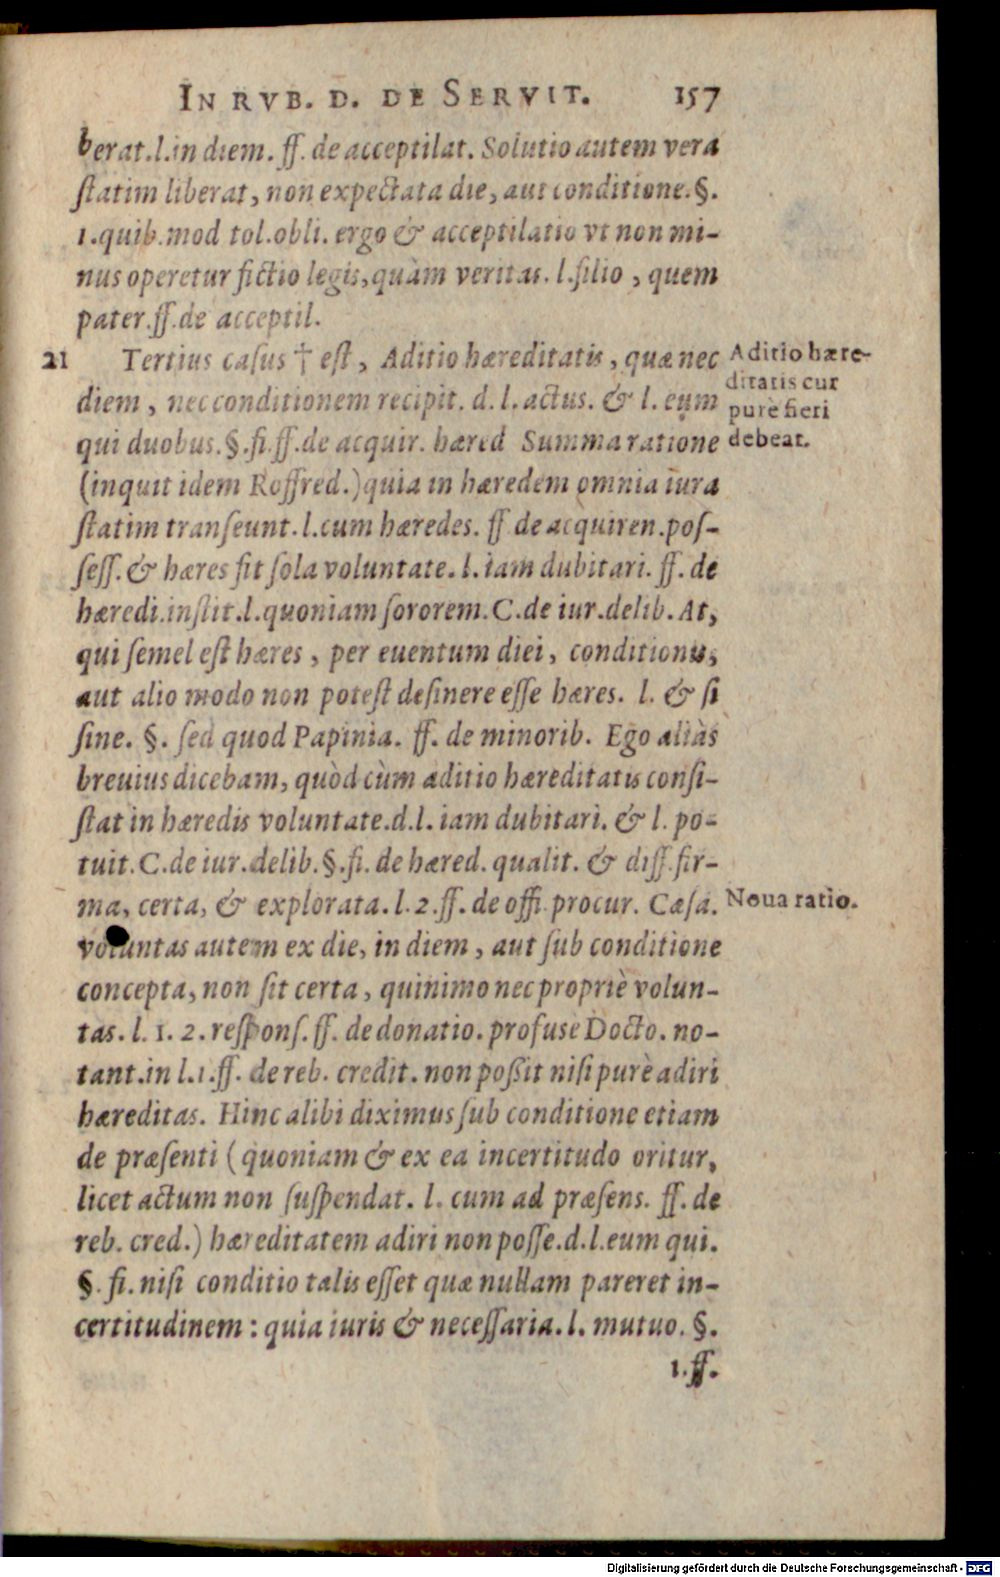 IN RVB. D. DE SERVIT. 157
berat.l.in diem. ff. de acceptilat. Solutio autem vera
ſtatim liberat, non expectata die, aut conditione. §.
1.quib.mod tol.obli. ergo & acceptilatio vt non mi-
nus operetur fictio legis, quàm veritas. l.filio, quem
pater.ff.de acceptil.
21 Tertius caſus † eſt, Aditio hæreditatis, quæ nec
Aditio hære-
ditatis cur
purè fieri
debeat.
diem, nec conditionem recipit. d. l. actus. & l. eum
qui duobus. §.fi.ff.de acquir. hæred Summa ratione
(inquit idem Roffred.) quia in hæredem omnia iura
ſtatim tranſeunt. l.cum hæredes. ff de acquiren.poſ-
ſeſſ. & hæres fit ſola voluntate. l. iam dubitari. ff. de
hæredi.inſtit.l.quoniam ſororem. C.de iur.delib. At,
qui ſemel eſt hæres, per euentum diei, conditionis,
aut alio modo non poteſt deſinere eſſe hæres. l. & ſi
ſine. §. ſed quod Papinia. ff. de minorib. Ego aliàs
breuius dicebam, quòd cùm aditio hæreditatis conſi-
ſtat in hæredis voluntate.d.l. iam dubitari. & l. po-
tuit. C.de iur.delib.§.fi. de hæred. qualit. & diff.fir-
ma, certa, & explorata. l. 2.ff. de offi procur. Cæſa.
Noua ratio.
voluntas autem ex die, in diem, aut ſub conditione
concepta, non ſit certa, quinimo nec propriè volun-
tas. l. 1. 2. reſponſ. ff. de donatio. profuse Docto. no-
tant.in l.1.ff. de reb. credit. non poßit niſi purè adiri
hæreditas. Hinc alibi diximus ſub conditione etiam
de præſenti (quoniam & ex ea incertitudo oritur,
licet actum non ſuſpendat. l. cum ad præſens. ff. de
reb. cred.) hæreditatem adiri non poſſe.d.l.eum qui.
§. fi. niſi conditio talis eſſet quæ nullam pareret in-
certitudinem: quia iuris & neceſſaria. l. mutuo. §.
1.ff.
Digitalisierung gefördert durch die Deutsche Forschungsgemeinschaft - DFG